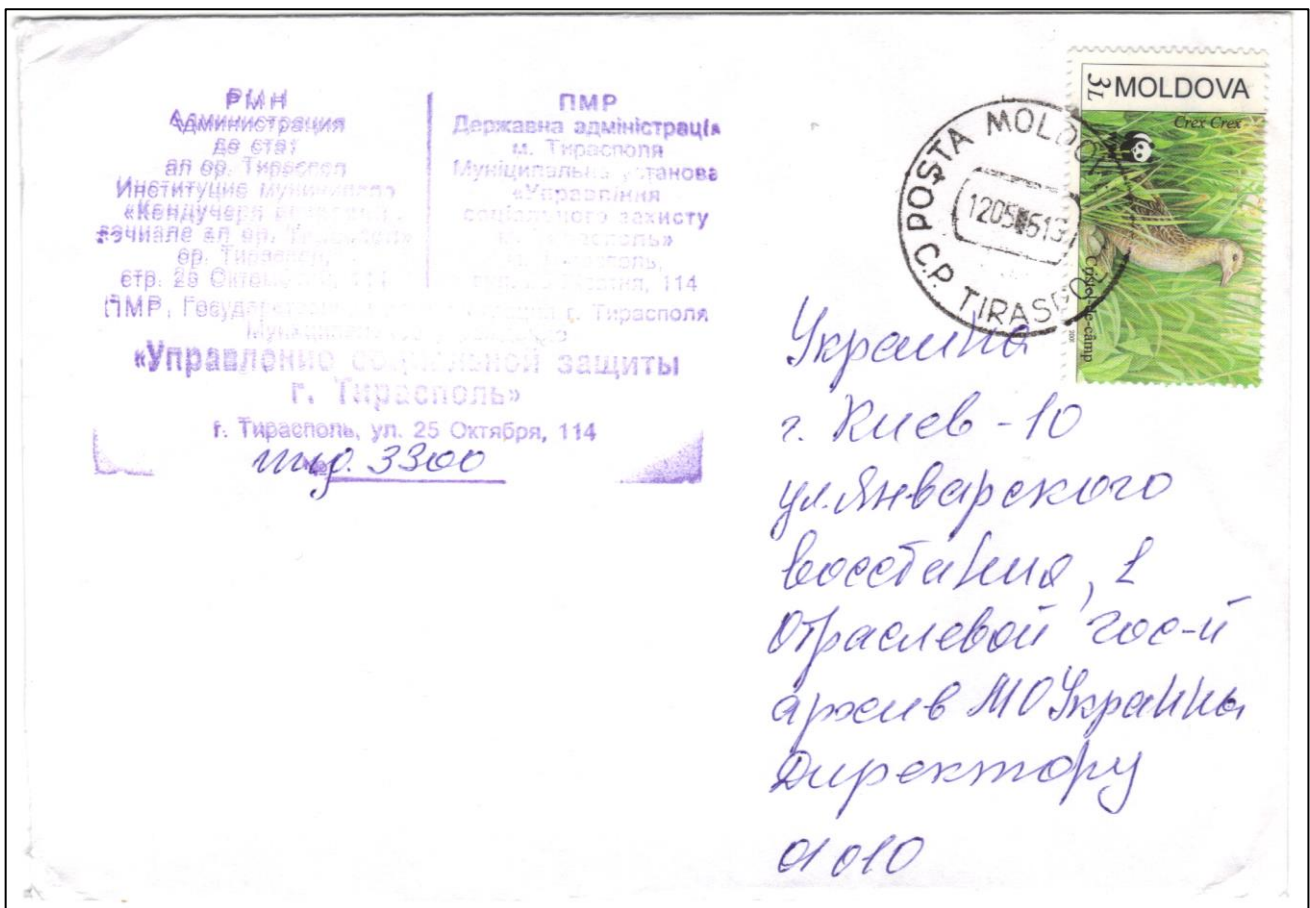 РМН
Администрация
де стат
ал ор. Тираспол
Институцие муничипалэ
«Кондучеря
сочиале ал ор. Тираспол»
ор. Тираспол,
стр. 25 Октомбрие, 114
ПМР
Державна адміністрація
м. Тирасполя
Муніципальна установа
«Управління
соціального захисту
м. Тирасполь»
м. Тирасполь,
вул. 25 Жовтня, 114
ПМР, Государственная администрация г. Тирасполя
Муниципальное учреждение
«Управление социальной защиты
г. Тирасполь»
г. Тирасполь, ул. 25 Октября, 114
инд. 3300
POŞTA MOLDOVEI
C.P. TIRASPOL
3L MOLDOVA
Crex Crex
Cristel-de-câmp
Украина
г. Киев - 10
ул. Январского
восстания, 1
Отраслевой гос-й
архив МО Украины
Директору
01010